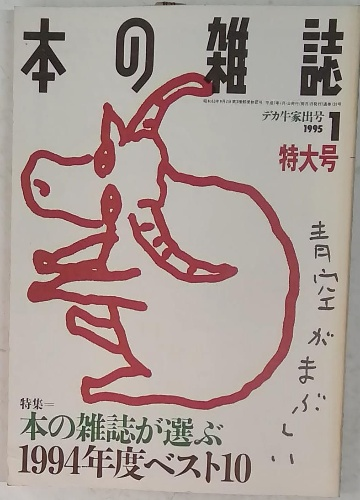 本の雑誌
デカ牛家出号
1995
1
特大号
青空がまぶしい
特集=
本の雑誌が選ぶ
1994年度ベスト10